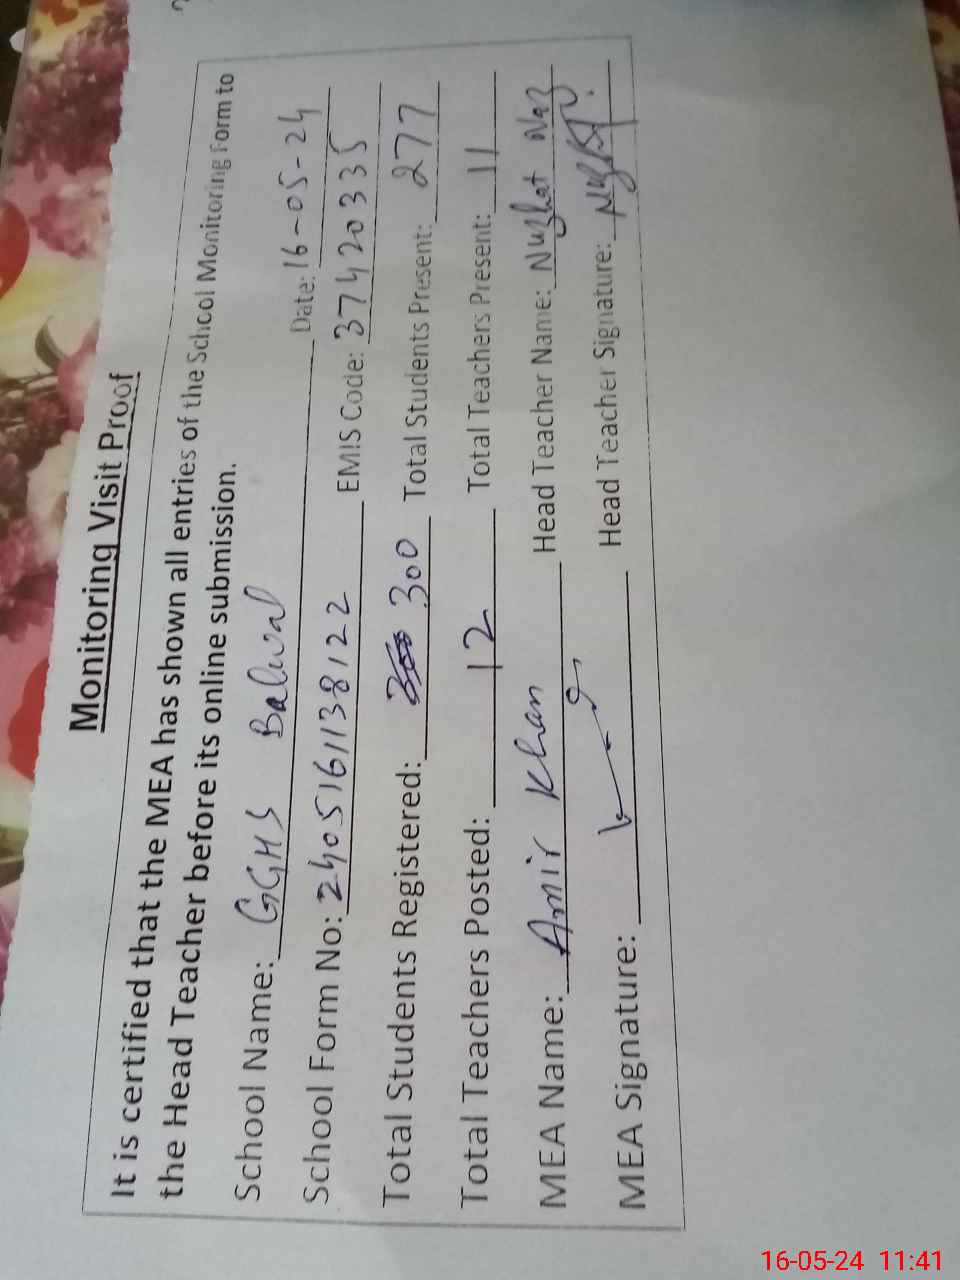 Monitoring Visit Proof
It is certified that the MEA has shown all entries of the School Monitoring Form to
the Head Teacher before its online submission.
School Name: GGHS Balwal Date: 16-05-24
School Form No: 2405161138122 EMIS Code: 37420335
Total Students Registered: 300 Total Students Present: 277
Total Teachers Posted: 12 Total Teachers Present: 11
MEA Name: Amir Khan Head Teacher Name: Nuzhat Naz
MEA Signature: Head Teacher Signature:
16-05-24 11:41